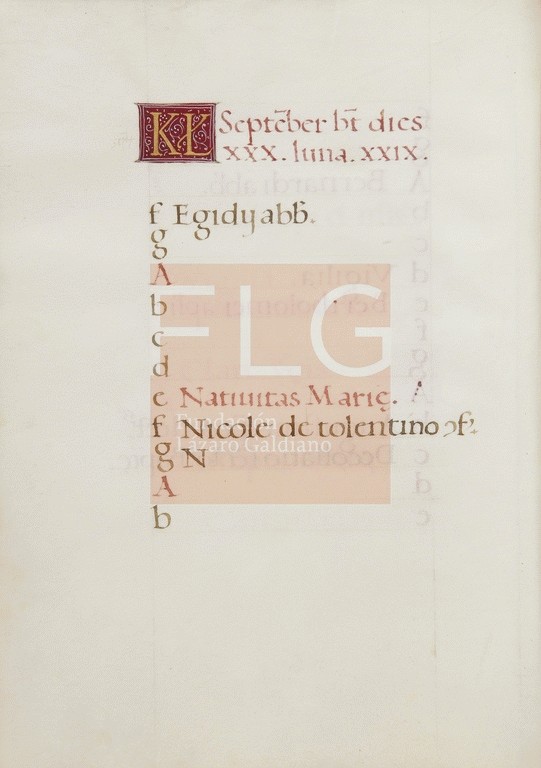 KL Septēber hт̄ dies
XXX. luna. XXIX.
f Egidij abb̄.
g
A
b
c
d
e Natiuitas Marię.
f Nicole de tolentino ↄf.
g N
A
b
FLG
Fundación
Lázaro Galdiano